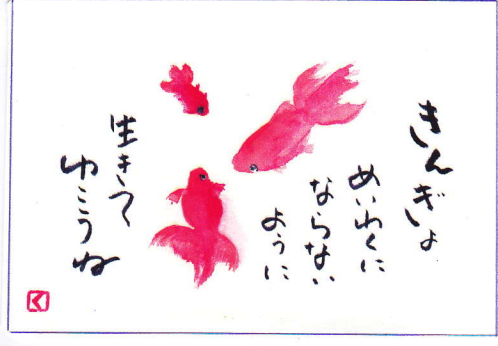 きんぎょ
めいわくに
ならない
ように
生きて
ゆこうね
く